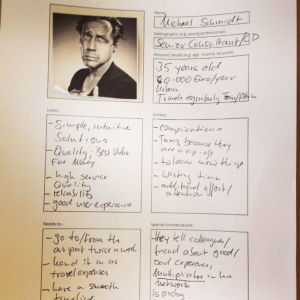 Name:
Michael Schmidt
Demographic (e.g. young professional)
Senior Consultant/
35 years old
60.000 Euro/year
Urban
Travels regularly
Loves:
- Simple, intuitive
solutions
- Quality, Best Value
For Money
- high service
Quality
- reliability
- good user experience
- complications
- Taxis because they
are a rip-off
- to learn new things
- wasting time
- additional effort/
attention
Needs to...
- go to/from the
airport twice a week
- hand it in as
travel expenses
- have a smooth
Special considerations:
they tell colleagues/
friends about good/
bad experiences,
Multiplicator in his
network